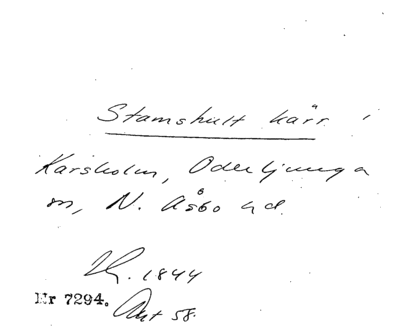 Stamshult kärr
Karsholm, Oderljunga
sn, N. Åsbo hd.
1844
Nr 7294. Akt 58.